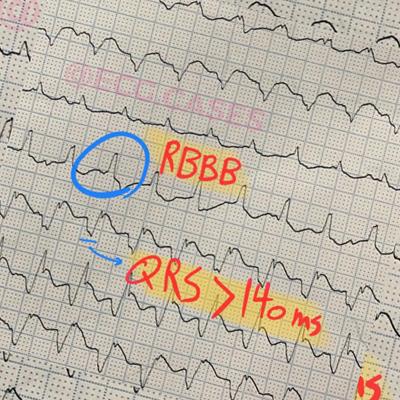 ECG CASES
RBBB
QRS > 140 ms